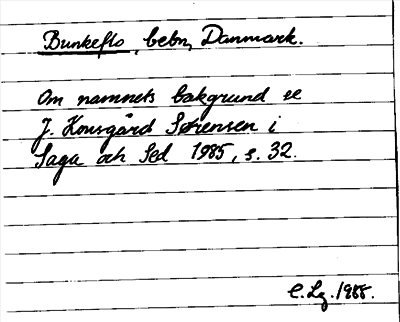 Bunkeflo, bebn, Danmark.
Om namnets bakgrund se
J. Kousgård Sørensen i
Saga och Sed 1985, s. 32.
C. Lg. 1988.